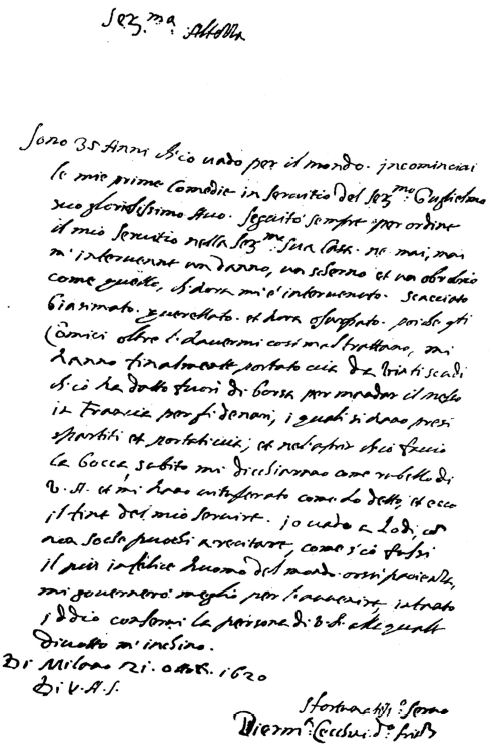 Ser.ma Altezza
Sono 35 Anni ch'io uado per il mondo. incominciai
le mie prime Comedie in seruitio del Ser.mo Guglielmo
suo gloriosissimo Auo. seguitò sempre per ordine
il mio seruitio nella Ser.ma sua Casa. ne mai, mai
m'interuenne un danno, un scherno et un obrobrio
come questo, ch'hora mi è interuenuto. scacciato
biasimato. querellato. et hora ... poiche gli
Comici oltre l'hauermi cosi mal trattato, mi
hanno finalmente portato uia da uinti scudi
ch'io ho datto fuori di borsa per mandar il messo
in Francia per gli denari, i quali si sono presi
spartiti et portati uia, et nel aprir ch'io faccio
la bocca, subito mi dicchiarano come rubello di
V. A. et mi hano come ho detto, et ecco
il fine del mio seruire. io uado a Lodi, con
una a recitare, come s'io fussi
il più infelice huomo del mondo. orsù pacienza,
mi gouernerò meglio per l'auenire, intanto
iddio conserui la persona di V. A. alla quale
diuotto m'inchino.
Di Milano 21. ottob. 1620
Di V. A. S.
sfortunatiss.o seruo
Pierm.a Cecchini d.o